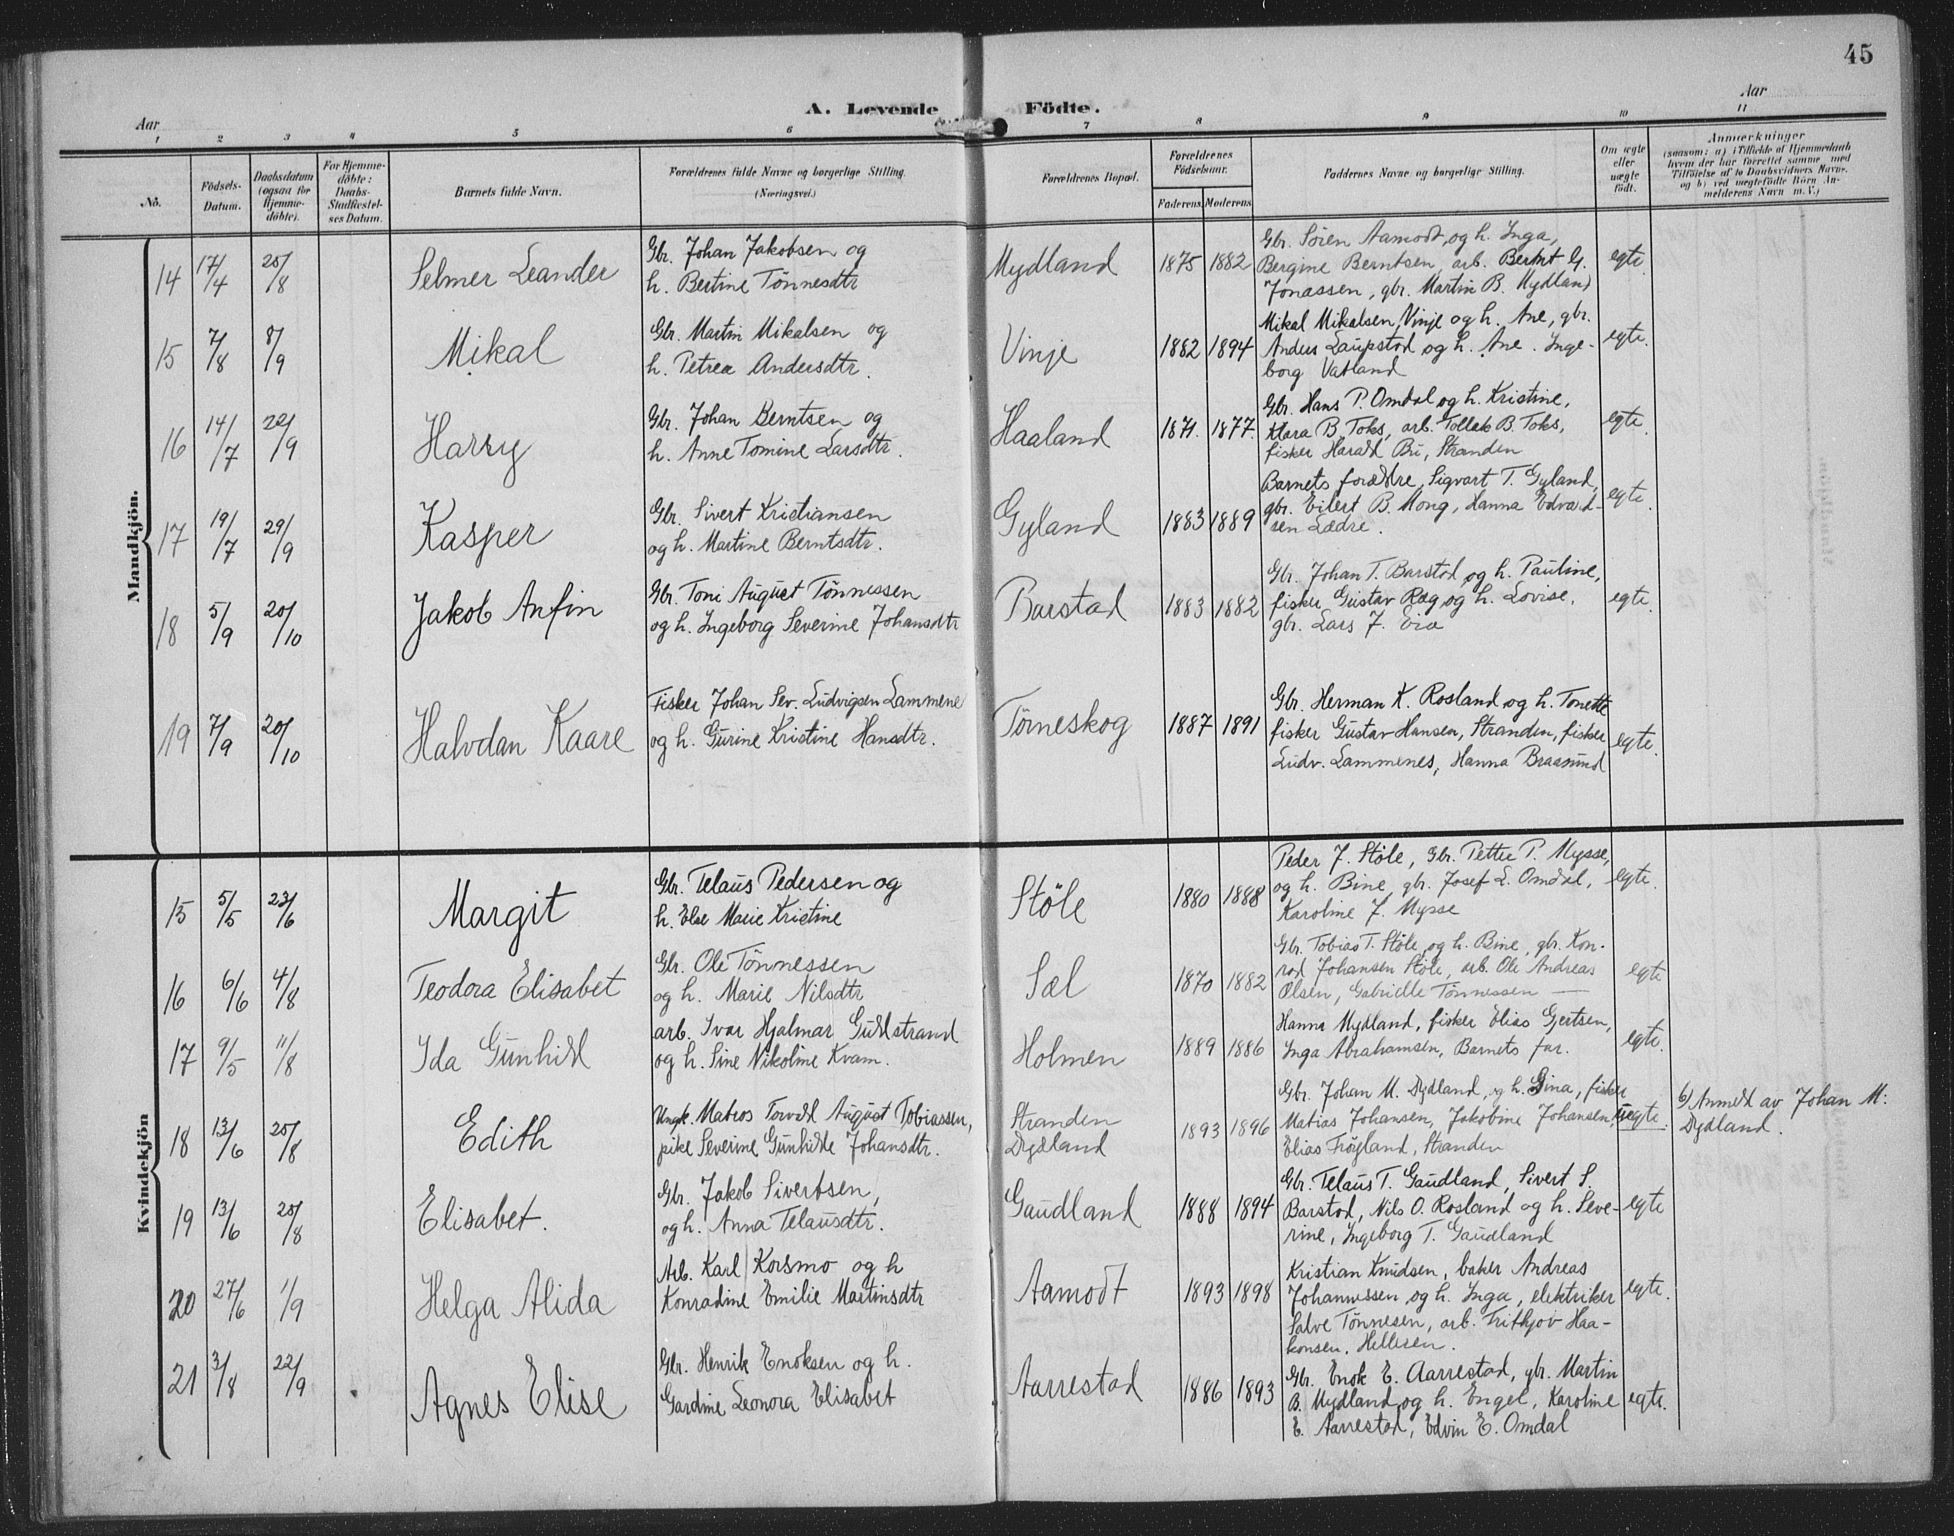 45
A. Levende Födte.
Aar
Aar
1 2 3 4 5 6 7 8 9 10 11
No.
Födsels-Datum.
Daabsdatum (ogsaa for Hjemme-döbte).
For Hjemme-döbte: Daabs-Stadfæstel-ses Datum.
Barnets fulde Navn.
Forældrenes fulde Navne og borgerlige Stilling. (Næringsvei.)
Forældrenes Bopæl.
Forældrenes Födselsaar.
Faderens Moderens
Faddernes Navne og borgerlige Stilling.
Om ægte eller uægte födt.
Anmærkninger
(saasom: a) i Tilfælde af Hjemmedaab
hvem der har forrettet samme med
Tilföielse af to Daabsvidners Navne.
og b) ved uægtefödte Börn An-
melderens Navn m. V.)
Mandkjön.
14 17/4 20/8 Selmer Leander
Gbr. Johan Jakobsen og
h. Bertine Tönnesdtr
Mydland 1875 1882
Gbr. Sören Aamodt, og h. Inga,
Bergine Berntsen, arb. Bernt G.
Jonassen, gbr. Martin B. Mydland
egte.
15 7/8 8/9 Mikal
Gbr. Martin Mikalsen og
h. Petrea Andersdtr.
Vinje 1882 1894
Mikal Mikalsen Vinje og h. Ane, gbr.
Anders Laupstad og h. Ane. Inge-
borg Vatland
egte.
16 14/7 22/9 Harry
Gbr. Johan Berntsen og
h. Anne Tomine Larsdtr.
Haaland 1871. 1877.
Gbr. Hans P. Omdal og h. Kristine,
Klara B. Toks, arb. Tollak B. Toks,
fisker Harald Bu, Stranden
egte.
17 19/7 29/9 Kasper
Gbr. Sivert Kristiansen
og h. Martine Berntsdtr.
Gyland 1883 1889
Barnets forældre, Sigvart T. Gyland,
gbr. Eilert B. Mong, Hanna Edvard-
sen Lædre.
egte.
18 5/9 20/10 Jakob Anfin
Gbr. Toni August Tönnessen
og h. Ingeborg Severine Johansdtr
Barstad 1883 1882
Gbr. Johan T. Barstad og h. Pauline,
fisker Gustav Ræg og h. Lovise,
gbr. Lars J. Eia
egte.
19 7/9 20/10 Halvdan Kaare
Fisker Johan Sev. Ludvigsen Lammenes
og h. Gurine Kristine Hansdtr.
Törneskog 1887 1891
Gbr. Herman K. Rosland og h. Tonette
fisker Gustav Hansen, Stranden, fisker
Ludv. Lammenes, Hanna Braasund
egte.
Kvindekjön
15 5/5 23/6 Margit
Gbr. Telaus Pedersen og
h. Else Marie Kristine
Stöle 1880 1888
Peder J. Stöle, Gbr. Petter P. Mysse,
og h. Bine, gbr. Josef L. Omdal,
Karoline J. Mysse
egte.
16 6/6 4/8 Teodora Elisabet
Gbr. Ole Tönnessen
og h. Marie Nilsdtr
Sæl 1870 1882
Gbr. Tobias T. Stöle og h. Bine, gbr. Kon-
rad Johansen Stöle, arb. Ole Andreas
Olsen, Gabrielle Tönnessen
egte
17 9/5 11/8 Ida Gunhild
arb. Ivar Hjalmar Guldstrand
og h. Sine Nikoline Kvam.
Holmen 1889 1886
Hanna Mydland, fisker Elias Gjertsen,
Inga Abrahamsen, Barnets far.
egte.
18 13/6 20/8 Edith
Ungk. Matros Torvald August Tobiassen,
pike Severine Gunhilde Johansdtr.
Stranden
Dydland
1893 1896
Gbr. Johan M. Dydland, og h. Gina, fisker
Matias Johansen, Jakobine Johansen,
Elias Fröyland, Stranden
uegte.
b) Anmeldt av Johan M.
Dydland.
19 13/6 20/8 Elisabet.
Gbr. Jakob Sivertsen,
og h. Anna Telausdtr.
Gaudland 1888 1894
Gbr. Telaus T. Gaudland, Sivert S.
Barstad, Nils O. Rosland og h. Seve-
rine, Ingeborg T. Gaudland
egte
20 27/6 1/9 Helga Alida
Arb. Karl Korsmo og h
Konradine Emilie Martinsdtr
Aamodt 1893 1898
Kristian Knudsen, baker Andreas
Johannessen og h. Inga, elektriker
Salve Tönnesen, arb. Fritkjov Haa-
konsen, Helleren.
egte.
21 3/8 22/9 Agnes Elise
Gbr. Henrik Enoksen og h.
Gardine Leonora Elisabet
Aarrestad 1886 1893
Gbr. Enok E. Aarrestad, gbr. Martin
B. Mydland og h. Engel, Karoline
E. Aarrestad, Edvin E. Omdal
egte.